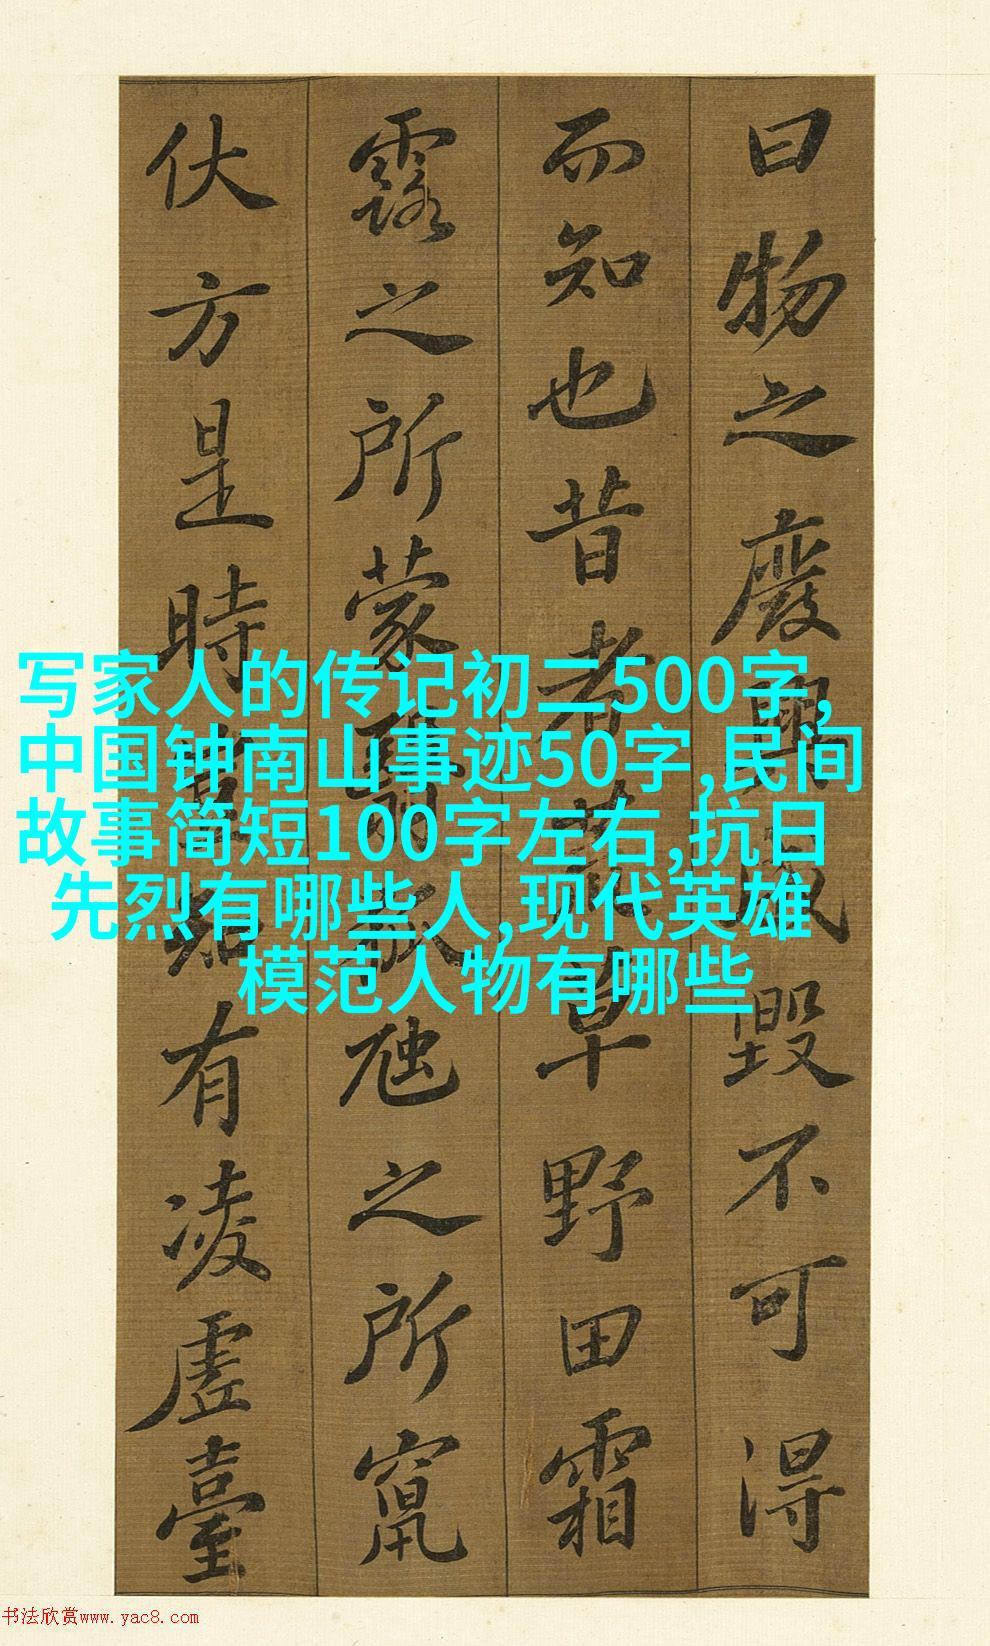 曰物之廢興成毀不可得
而知也昔者荒草野田霜
露之所蒙翳狐虺之所竄
伏方是時豈知有凌虛臺
写家人的传记初二500字,
中国钟南山事迹50字,民间
故事简短100字左右,抗日
先烈有哪些人,现代英雄
模范人物有哪些
书法欣赏www.yac8.com